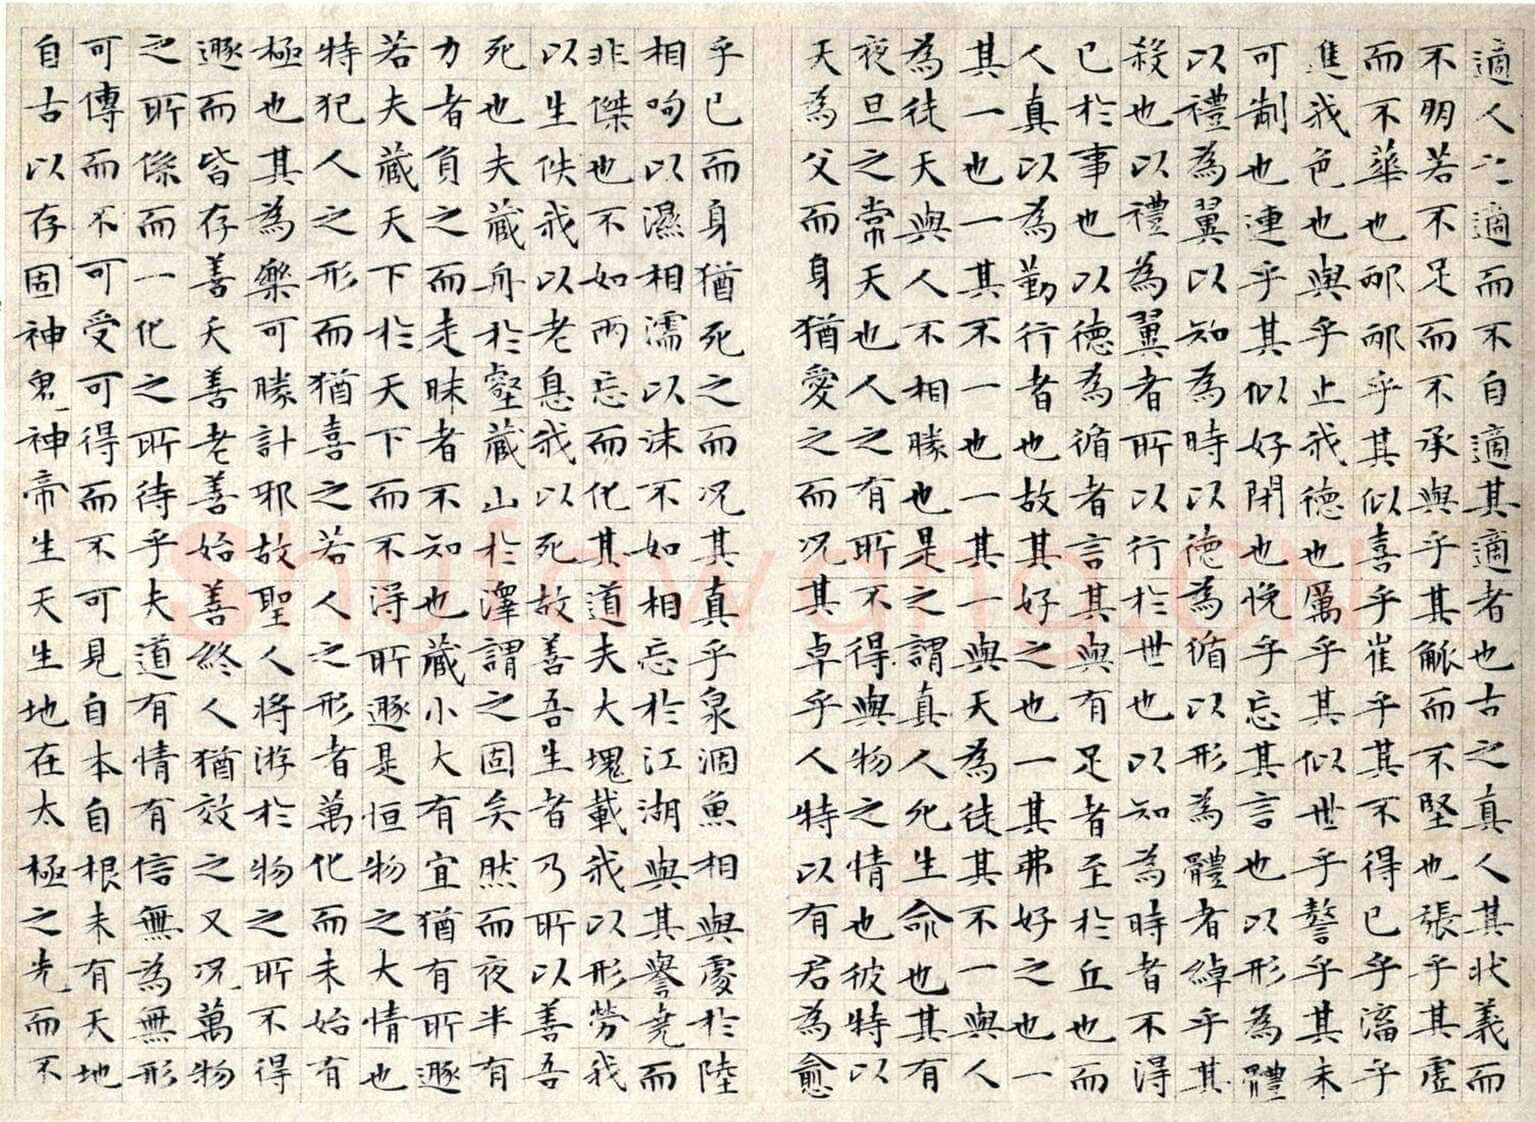 適人之適而不自適其適者也古之真人其狀義而
不朋若不足而不承與乎其觚而不堅也張乎其虛
而不華也邴邴乎其似喜乎崔乎其不得已乎滀乎
進我色也與乎止我德也厲乎其似世乎謷乎其未
可制也連乎其似好閉也悗乎忘其言也以形為體
以禮為翼以知為時以德為循以形為體者綽乎其
殺也以禮為翼者所以行於世也以知為時者不得
已於事也以德為循者言其與有足者至於丘也而
人真以為勤行者也故其好之也一其弗好之也一
其一也一其不一也一其一與天為徒其不一與人
為徒天與人不相勝也是之謂真人死生命也其有
夜旦之常天也人之有所不得與物之情也彼特以
天為父而身猶愛之而況其卓乎人特以有君為愈
乎已而身猶死之而況其真乎泉涸魚相與處於陸
相呴以濕相濡以沫不如相忘於江湖與其譽堯而
非傑也不如兩忘而化其道夫大塊載我以形勞我
以生佚我以老息我以死故善吾生者乃所以善吾
死也夫藏舟於壑藏山於澤謂之固矣然而夜半有
力者負之而走昧者不知也藏小大有宜猶有所遯
若夫藏天下於天下而不得所遯是恒物之大情也
特犯人之形而猶喜之若人之形者萬化而未始有
極也其為樂可勝計邪故聖人將游於物之所不得
遯而皆存善夭善老善始善終人猶效之又況萬物
之所係而一化之所待乎夫道有情有信無為無形
可傳而不可受可得而不可見自本自根未有天地
自古以存固神鬼神帝生天生地在太極之先而不
shufawang.CN